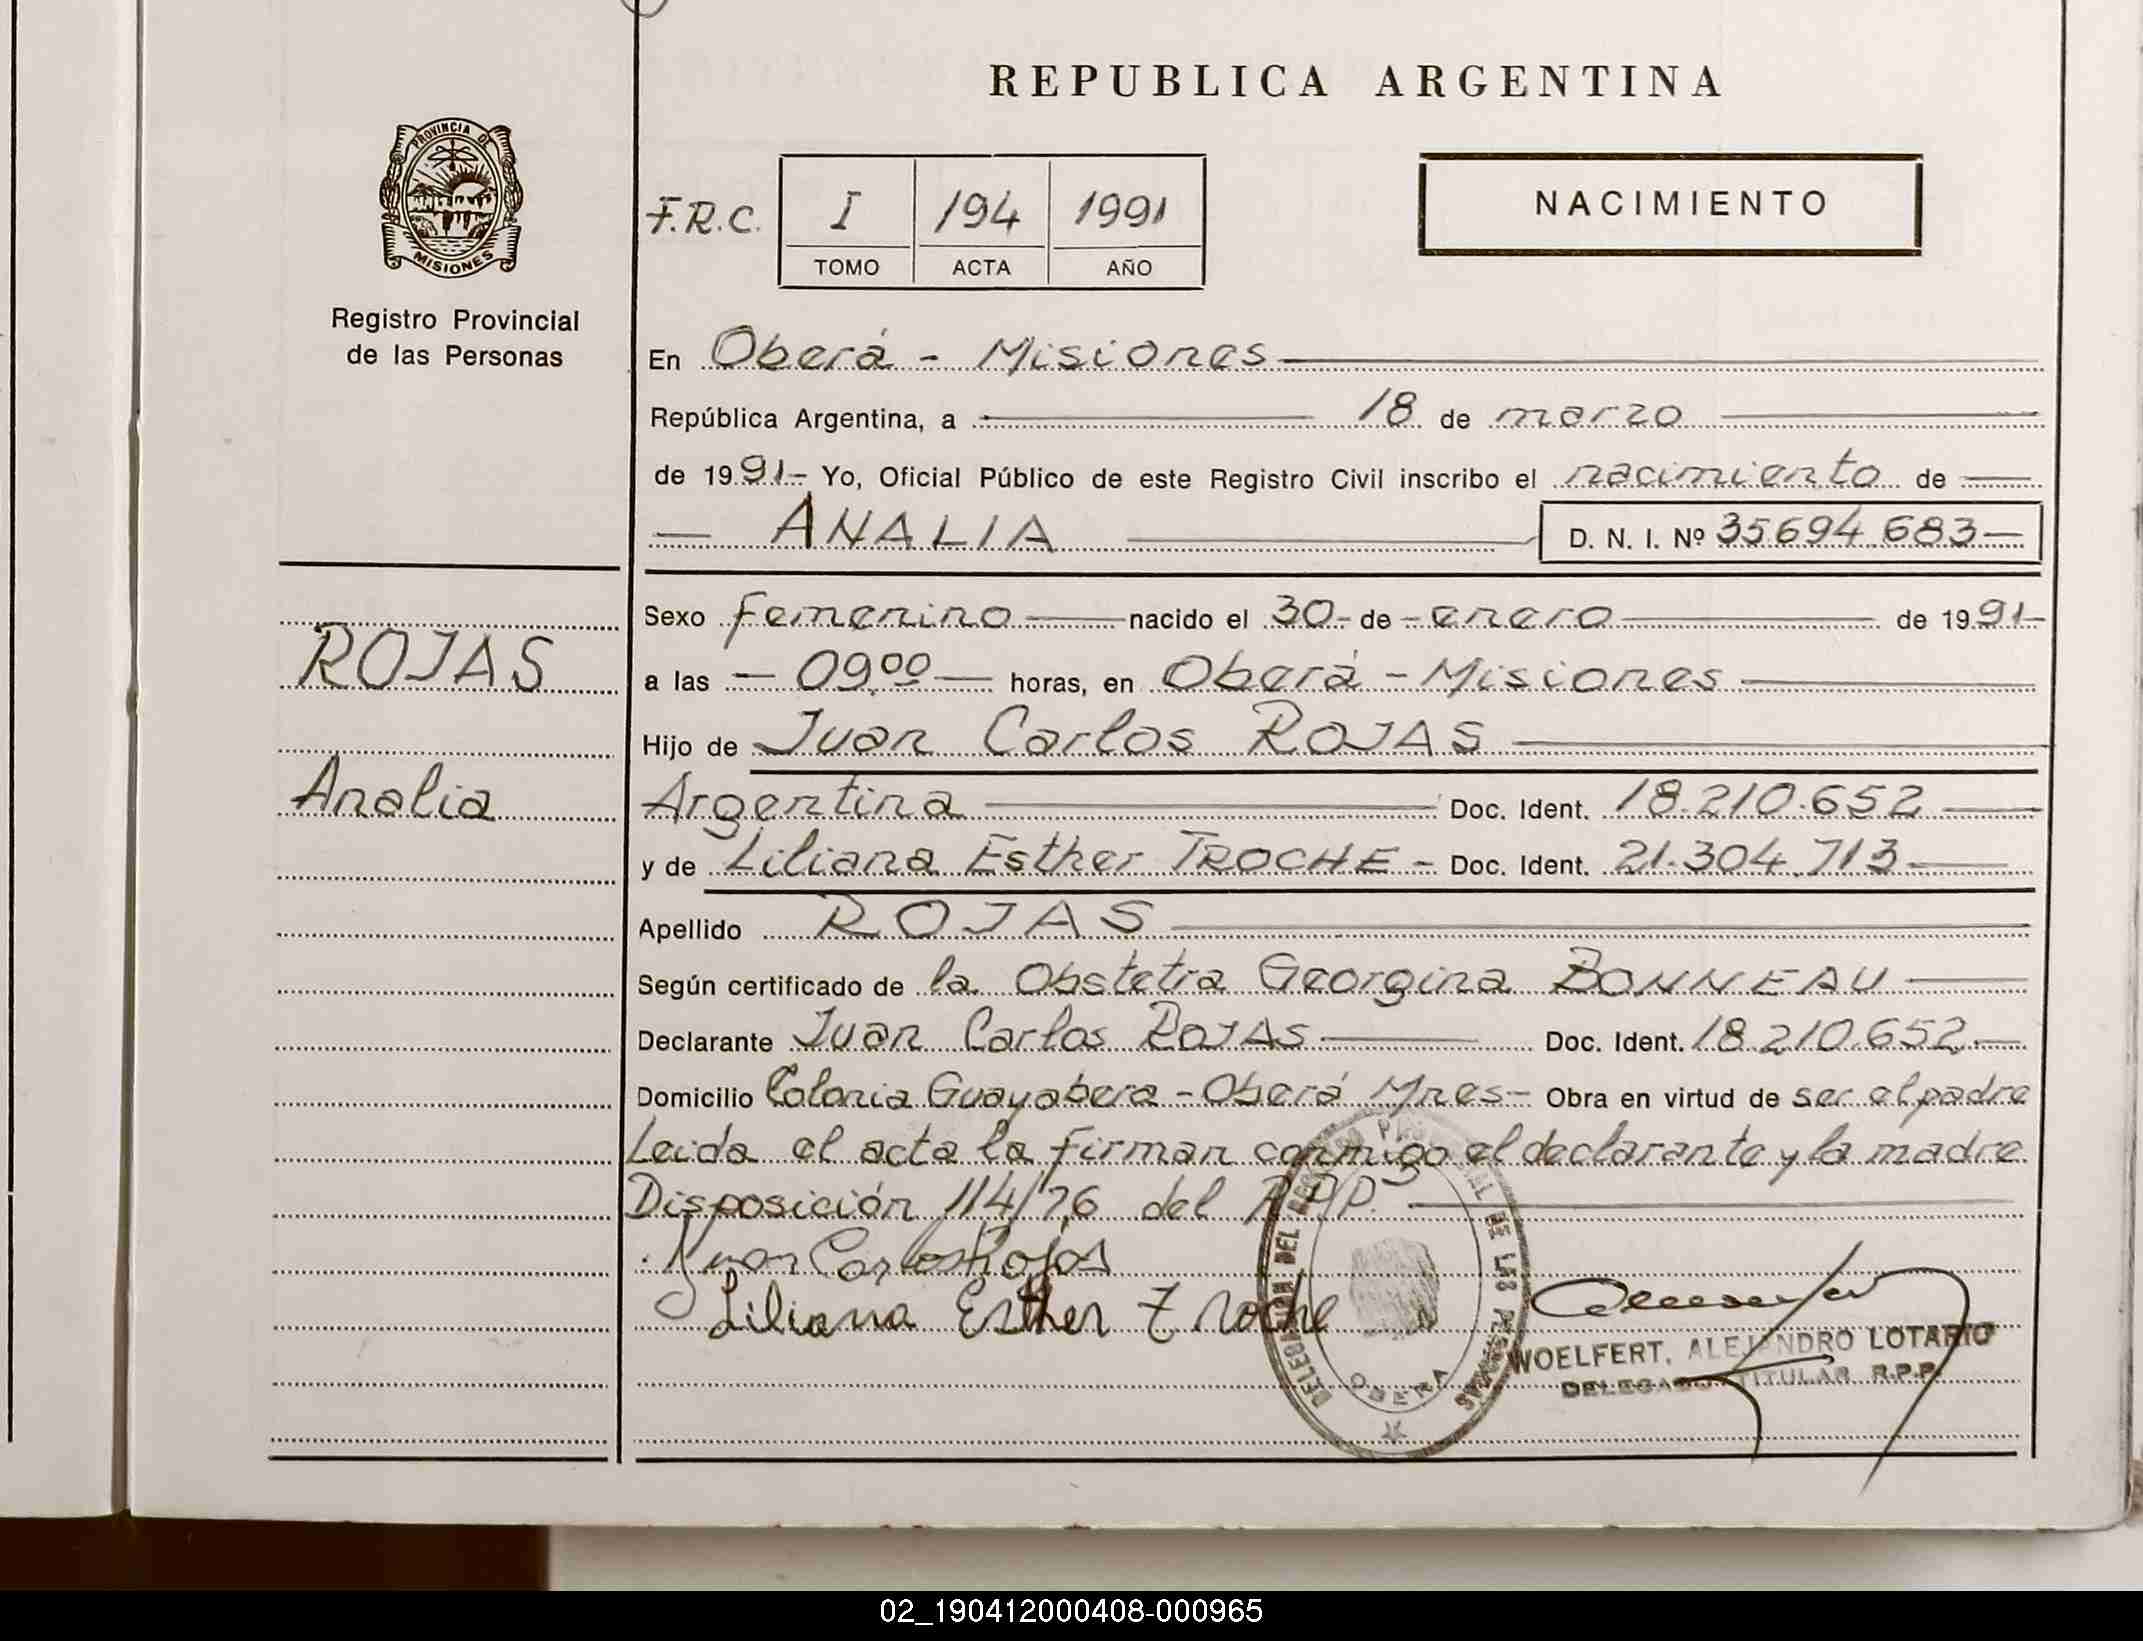 REPUBLICA ARGENTINA
PROVINCIA DE
MISIONES
Registro Provincial
de las Personas
F.R.C. I 194 1991
TOMO ACTA AÑO
NACIMIENTO
En Oberá - Misiones
República Argentina, a 18 de marzo
de 1991- Yo, Oficial Público de este Registro Civil inscribo el nacimiento de
ANALIA D. N. I. Nº 35694.683
ROJAS
Analia
Sexo femenino nacido el 30- de - enero de 1991-
a las - 09,00 - horas, en Oberá - Misiones
Hijo de Juan Carlos ROJAS
Argentina Doc. Ident. 18.210.652
y de Liliana Esther TROCHE - Doc. Ident. 21.304.713
Apellido ROJAS
Según certificado de la Obstetra Georgina BONNEAU
Declarante Juan Carlos ROJAS Doc. Ident. 18.210.652
Domicilio Colonia Guayabera - Oberá Mnes - Obra en virtud de ser el padre
Leida el acta la firman conmigo el declarante y la madre
Disposición 114/76 del R.P.P.
Juan Carlos Rojas
Liliana Esther Troche
DELEGACION DEL REGISTRO PROVINCIAL DE LAS PERSONAS
OBERA
WOELFERT, ALEJANDRO LOTARIO
DELEGADO TITULAR R.P.P.
02_190412000408-000965